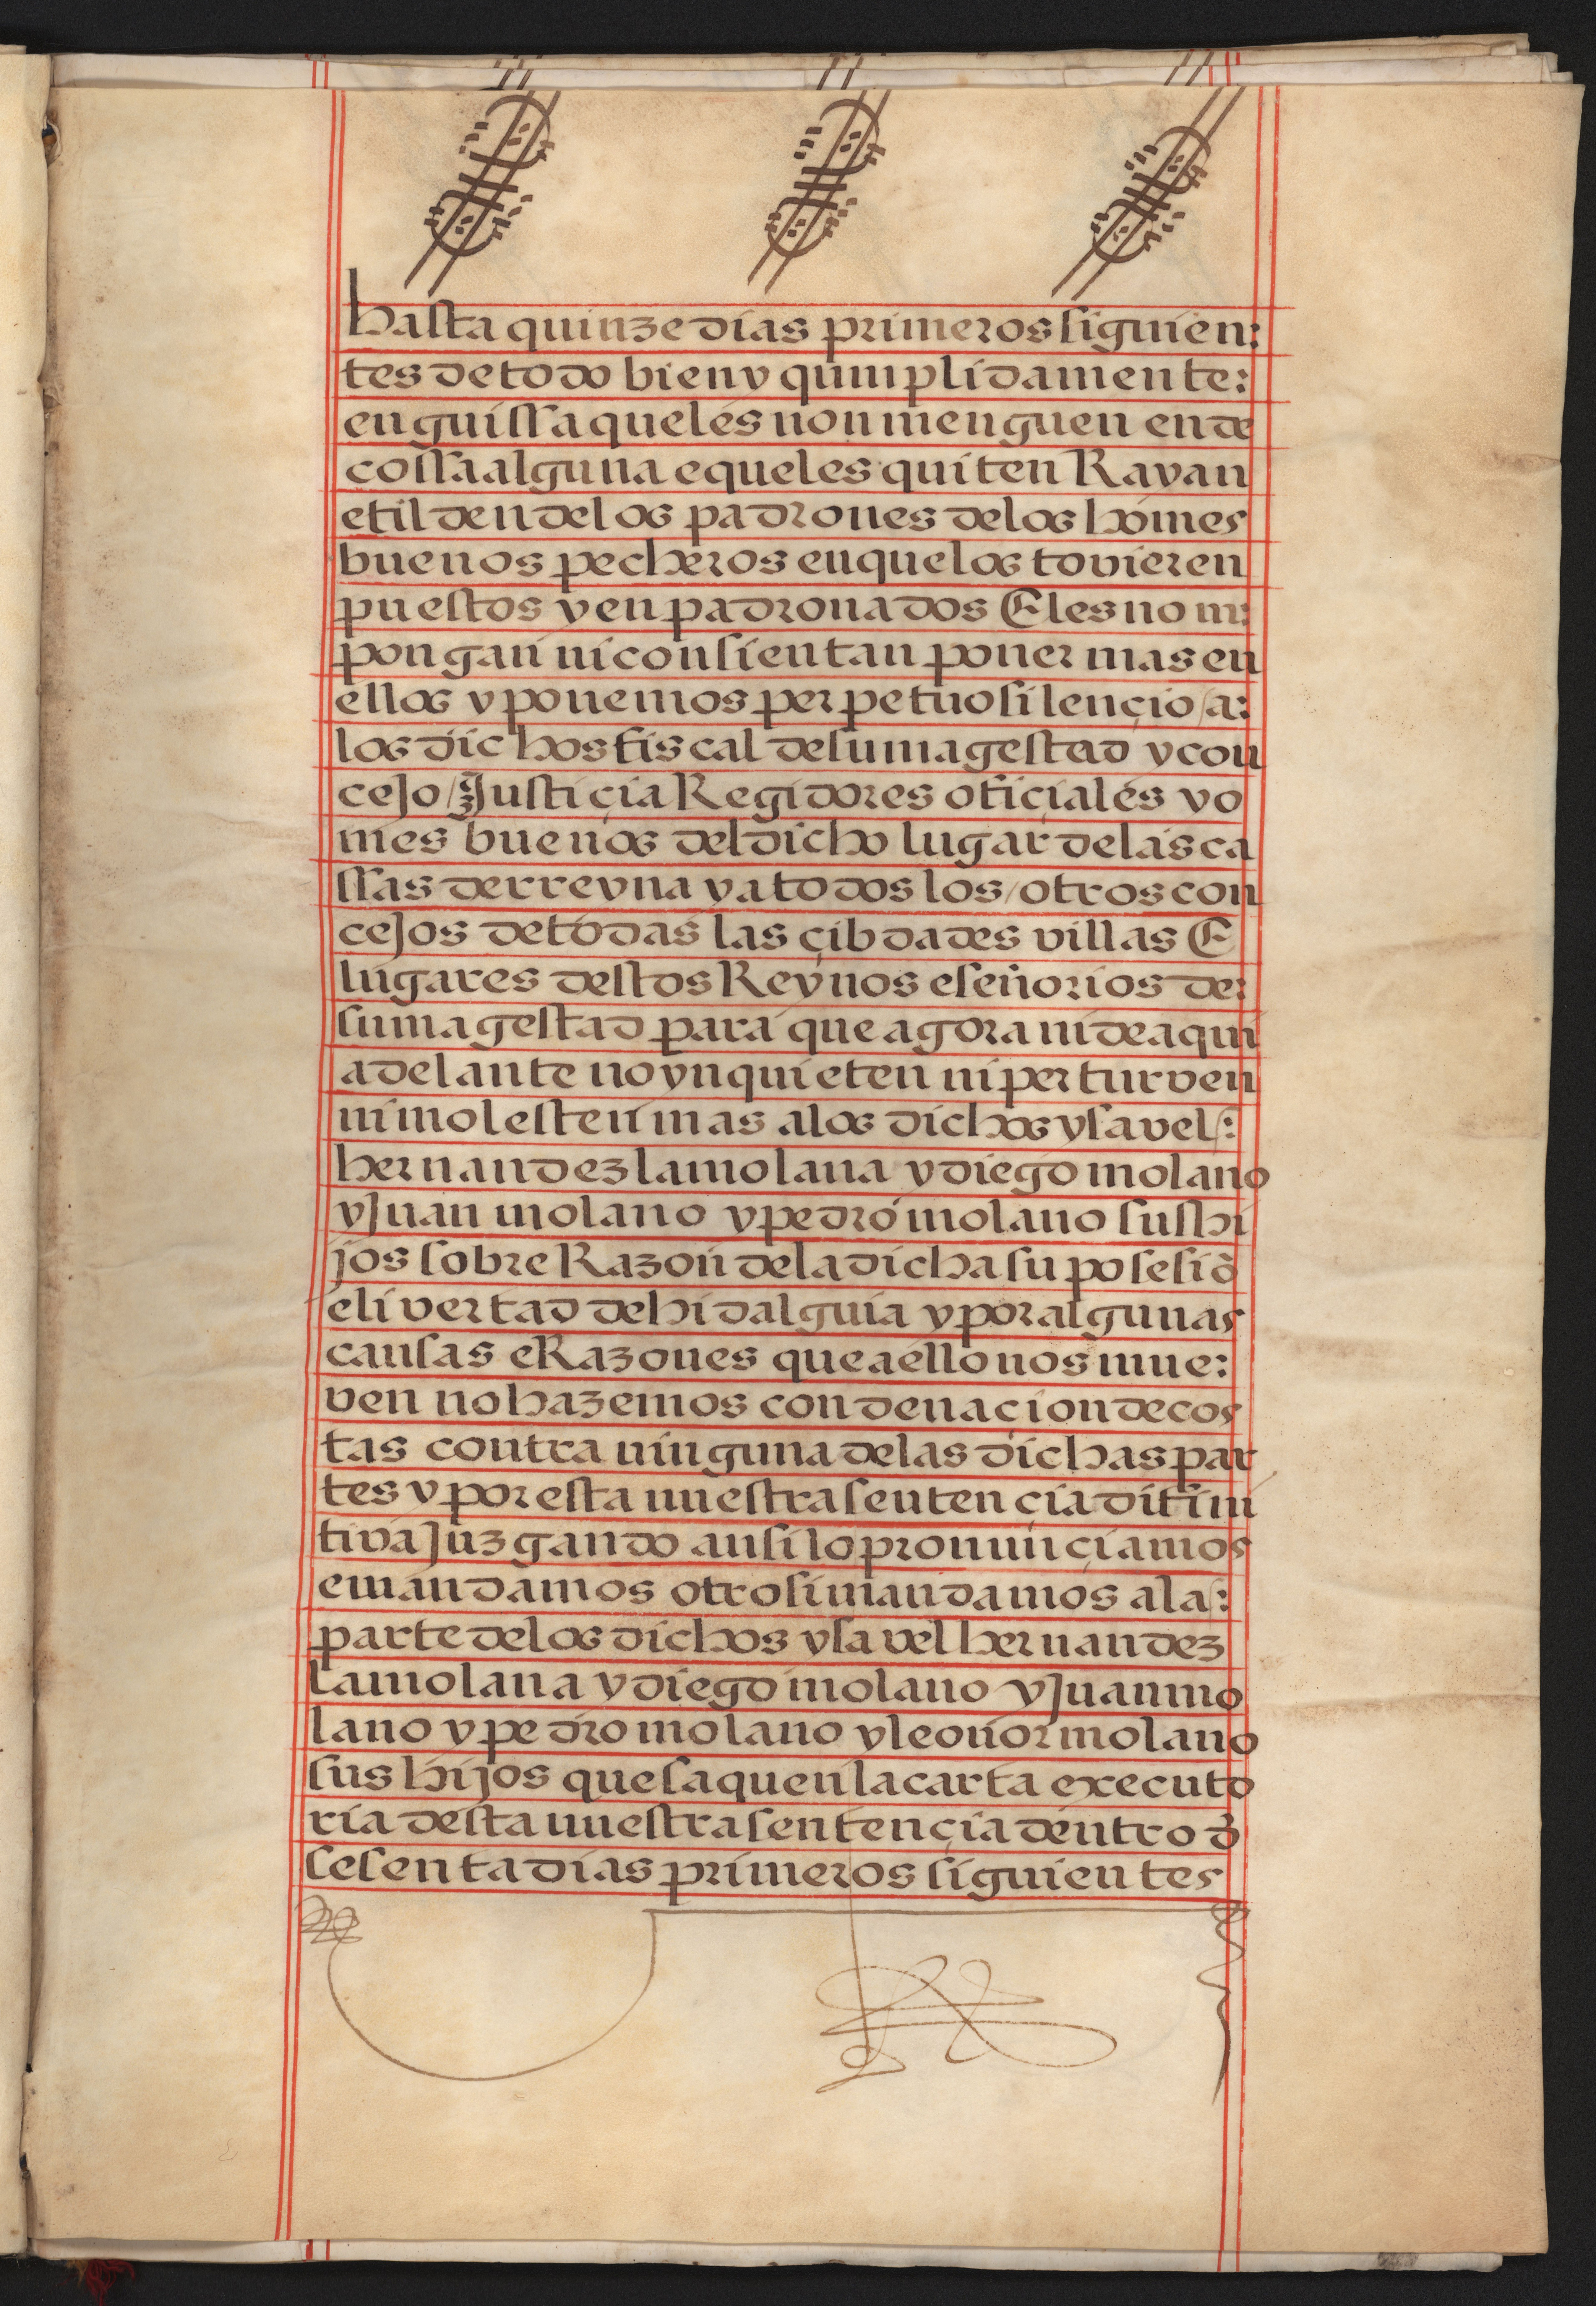 hasta quinze dias primeros siguien:
tes de todo bien y qumplidamente:
en guissa que les non menguen ende
cossa alguna e que les quiten Rayan
e tilden de los padrones de los homes
buenos pecheros en que los tovieren
puestos y enpadronados E les no m:
pongan ni consientan poner mas en
ellos y ponemos perpetuo silençio / a:
los dichos fiscal de su magestad y con
cejo / Justiçia Regidores ofiçiales y o
mes buenos del dicho lugar de las ca
ssas de rreyna y a todos los / otros con
cejos de todas las çibdades villas E
lugares destos Reynos e señorios de:
su magestad para que agora ni de aqui
adelante no ynquieten ni perturven
ni molesten mas a los dichos ysavel /:
hernandez la molana y diego molano
y Juan molano y pedro molano sus hi
jos sobre Razon de la dicha su posesiõ
e livertad de hidalguia y por algunas
causas e Razones que a ello nos mue:
ven no hazemos condenaçion de cos
tas contra ninguna de las dichas par
tes y por esta nuestra sentençia difini
tiva Juzgando ansi lo pronunçiamos
e mandamos otrosi mandamos a la /:
parte de los dichos ysavel hernandez
la molana y diego molano y Juan mo
lano y pedro molano y leonor molano
sus hijos que saquen la carta executo
ria desta nuestra sentençia dentro đ
sesenta dias primeros siguientes